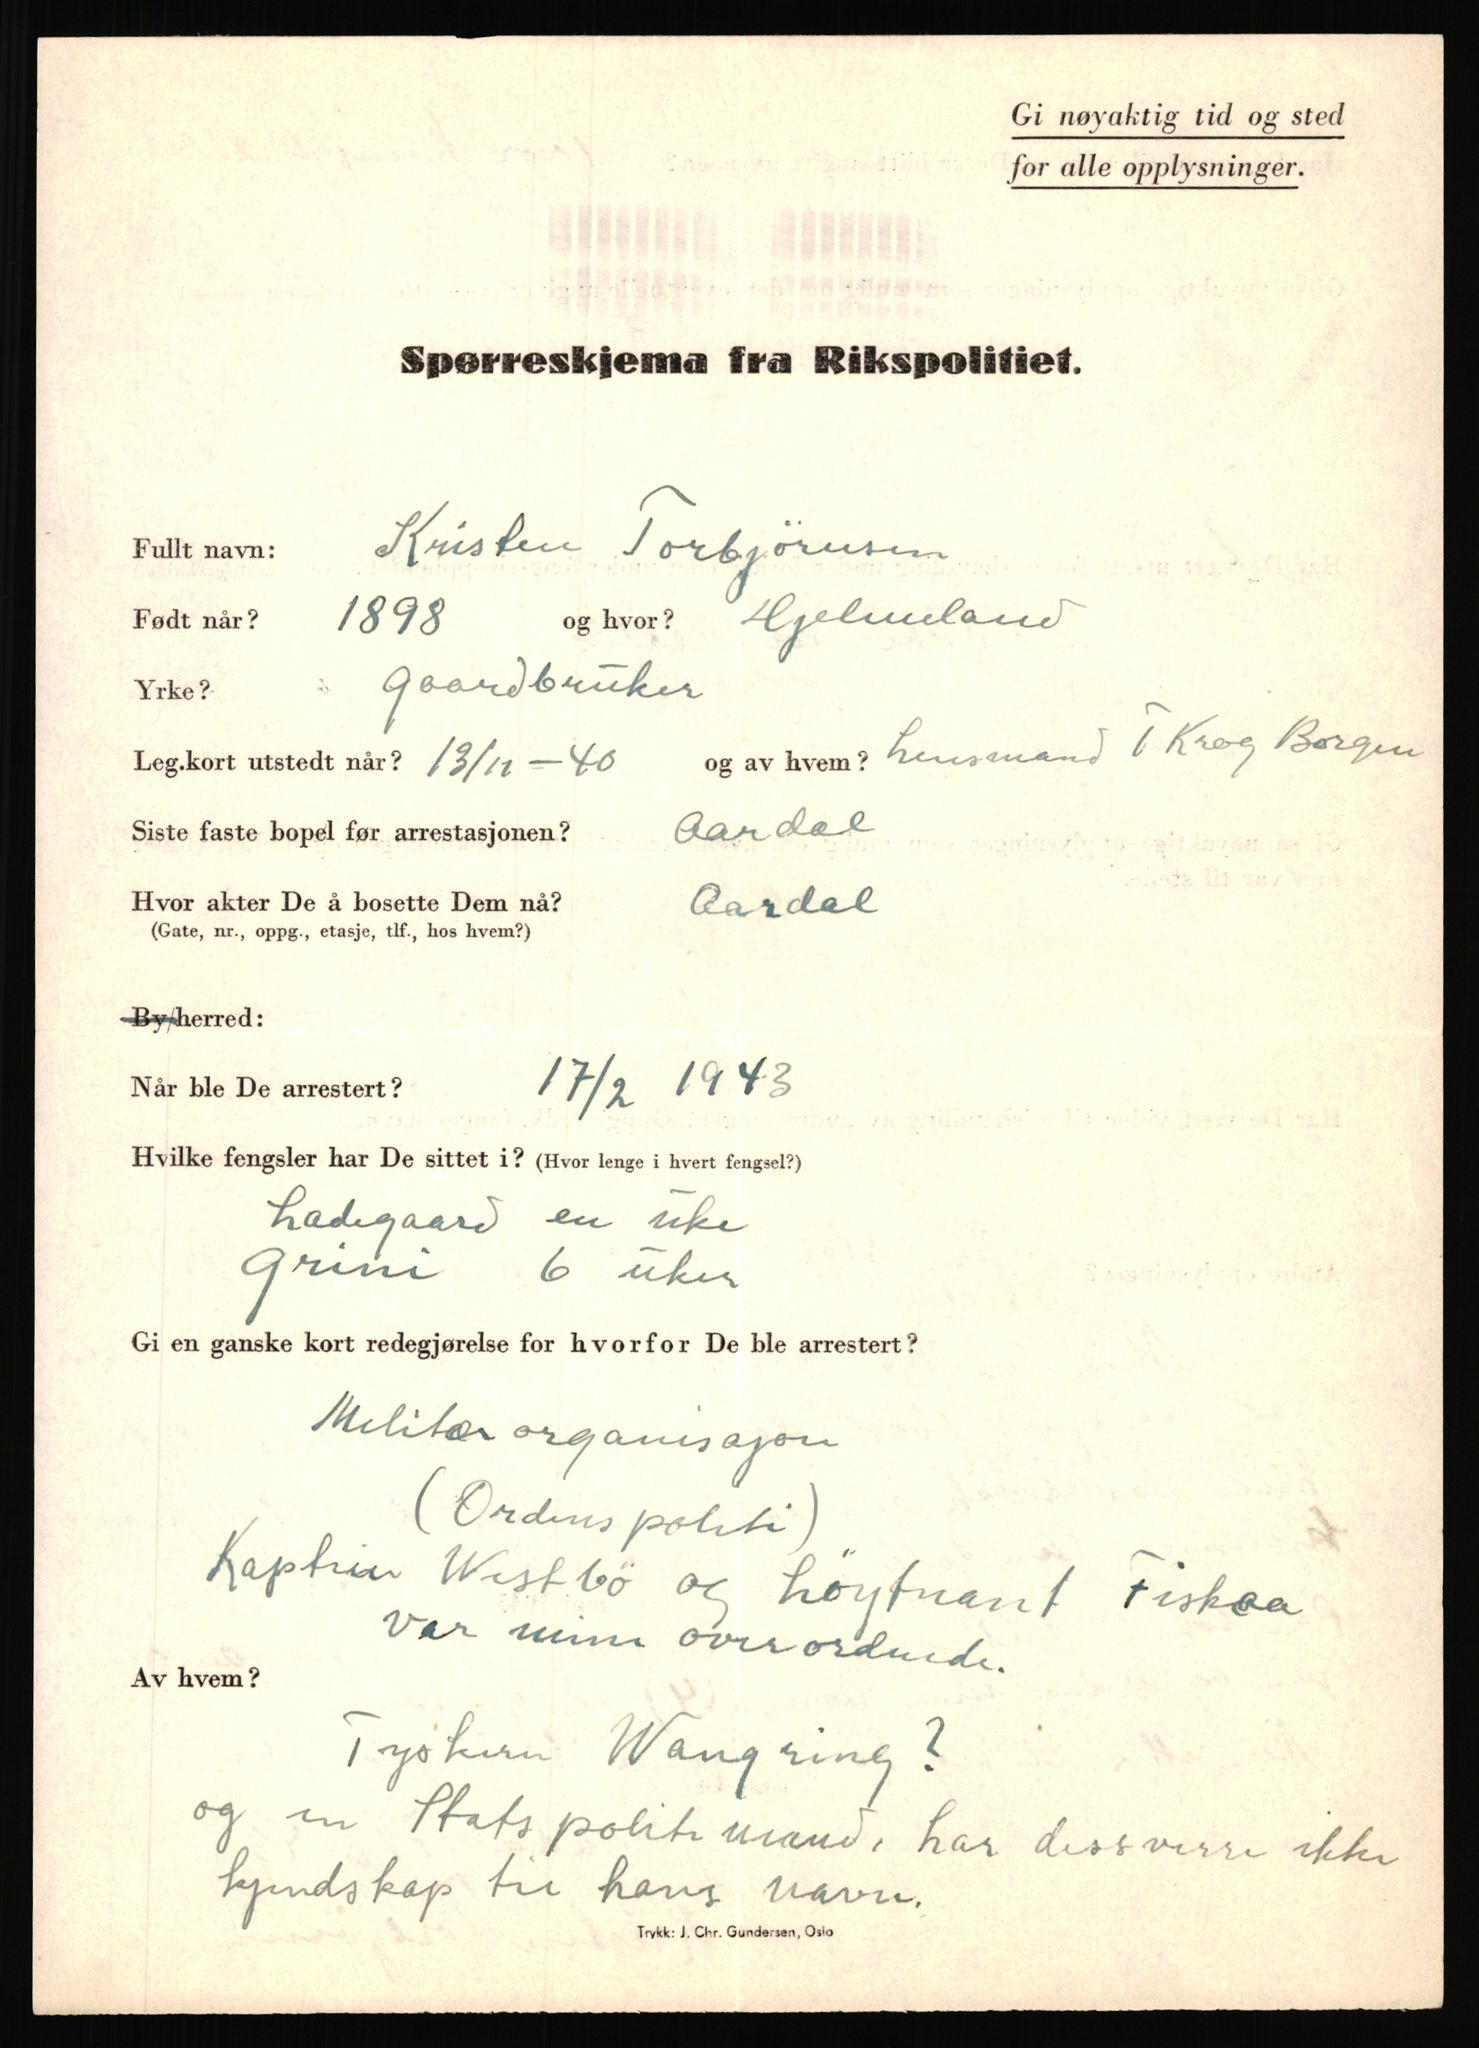 Gi nøyaktig tid og sted
for alle opplysninger.
Spørreskjema fra Rikspolitiet.
Fullt navn: Kristen Torbjörnsen
Født når? 1898 og hvor? Hjelmeland
Yrke? gaardbruker
Leg.kort utstedt når? 13/11 - 40 og av hvem? Lensmand T Krog Borgen
Siste faste bopel før arrestasjonen? Aardal
Hvor akter De å bosette Dem nå? Aardal
(Gate, nr., oppg., etasje, tlf., hos hvem?)
By/herred:
Når ble De arrestert? 17/2 1943
Hvilke fengsler har De sittet i? (Hvor lenge i hvert fengsel?)
Ladegaard en uke
Grini 6 uker
Gi en ganske kort redegjørelse for hvorfor De ble arrestert?
Militær organisajon
(Ordens politi)
Kaptein Westbö og Löytnant Fiskaa
var mine overordnede.
Av hvem?
Tyskeren Wangring?
og en Stats politi mand, har dessverre ikke
kjendskap til hans navn.
Trykk: J. Chr. Gundersen, Oslo